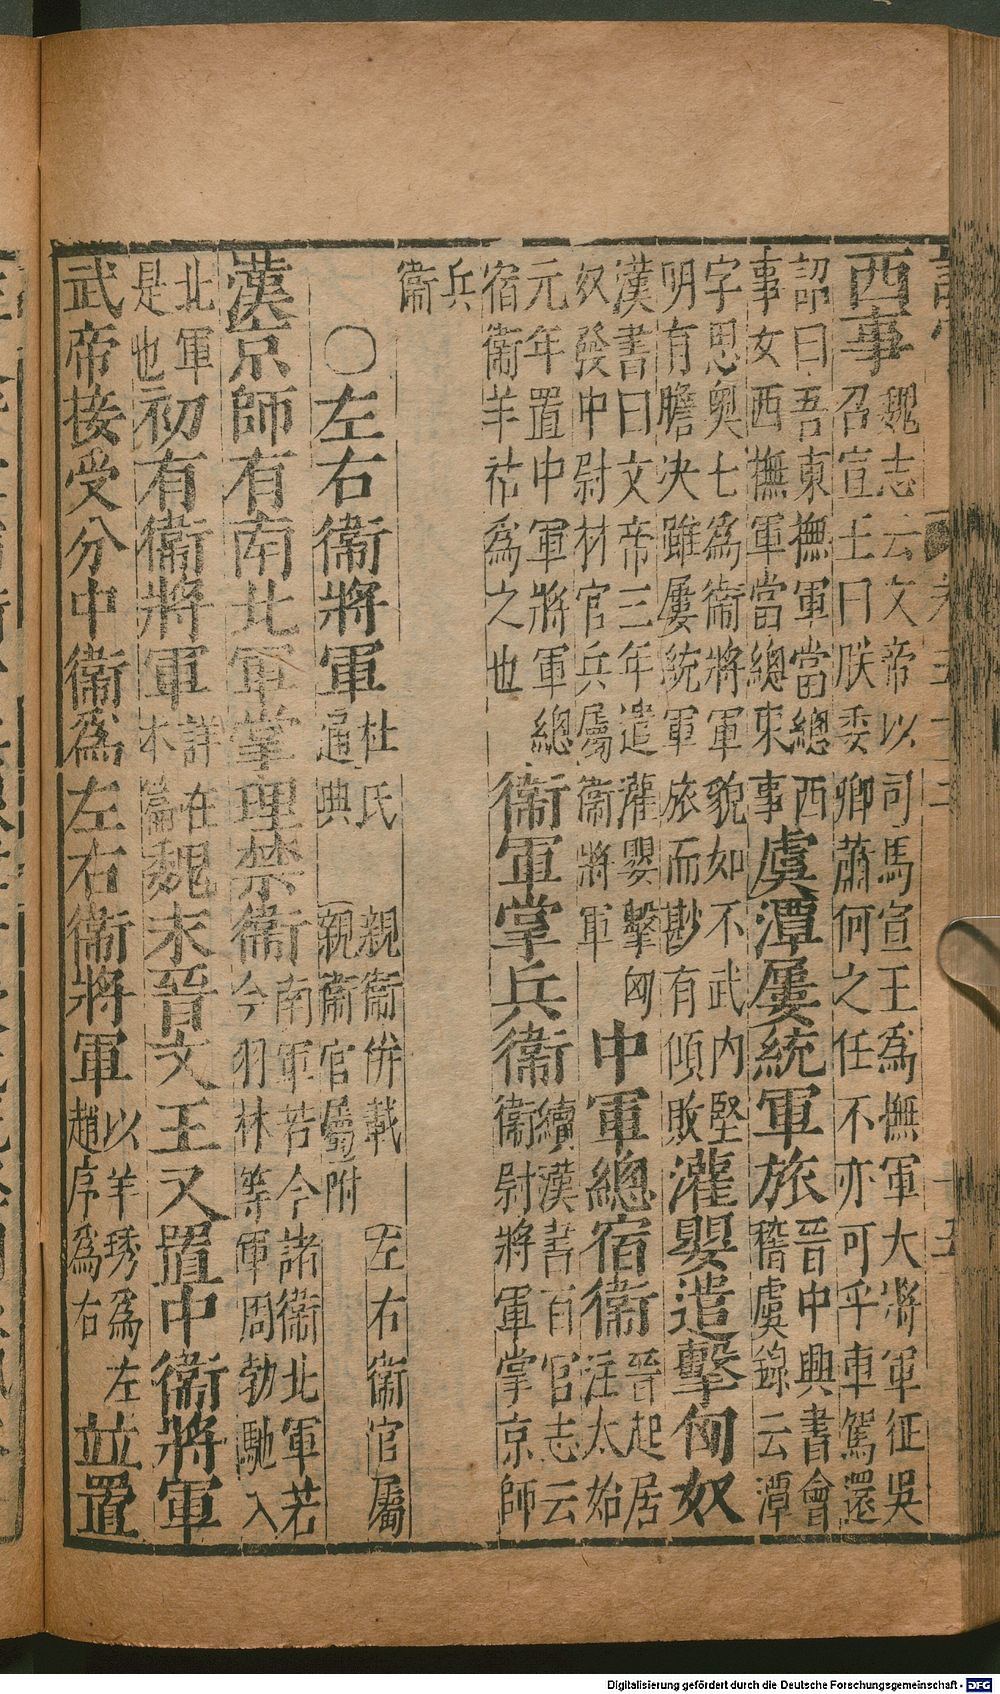 西事
魏志云文帝以司馬宣王爲撫軍大將軍征吳
召宣王曰朕委卿蕭何之任不亦可乎車駕還
詔曰吾東撫軍當總西
事女西撫軍當總東事
虞潭屢統軍旅
晉中興書會
稽虞錄云潭
字思奧七爲衞將軍貌如不武内堅
明有膽决雖屢統軍旅而尠有傾敗
灌嬰遣擊匈奴
漢書曰文帝三年遣灌嬰擊匈
奴發中尉材官兵屬衞將軍
中軍總宿衞
晉起居
注太始
元年置中軍將軍總
宿衞羊祜爲之也
衞軍掌兵衞
續漢書百官志云
衞尉將軍掌京師
兵
衞
○左右衞將軍
杜氏
通典
親衞併載
親衞官屬附
左右衞官屬
漢京師有南北軍掌理禁衞
南軍若今諸衞北軍若
今羽林等軍周勃馳入
北軍
是也
初有衞將軍
詳在
本篇
魏末晉文王又置中衞將軍
武帝接受分中衞爲左右衞將軍
以羊琇爲左
趙序爲右
並置
Digitalisierung gefördert durch die Deutsche Forschungsgemeinschaft - DFG